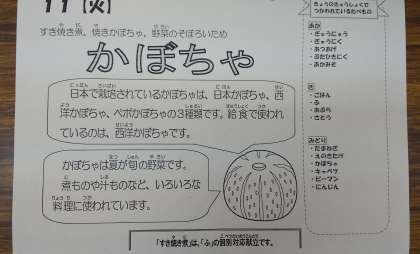 11【火】
すき焼き煮、焼きかぼちゃ、野菜のそぼろいため
かぼちゃ
日本で栽培されているかぼちゃは、日本かぼちゃ、西
洋かぼちゃ、ペポかぼちゃの３種類です。給食で使われ
ているのは、西洋かぼちゃです。
かぼちゃは夏が旬の野菜です。
煮ものや汁ものなど、いろいろな
料理に使われています。
「すき焼き煮」は、「ふ」の個別対応献立です。
きょうのきゅうしょくで
つかわれているたべもの
あか
・ぎゅうにゅう
・ぎゅうにく
・あつあげ
・ぶたひきにく
・あかみそ
き
・ごはん
・ふ
・あぶら
・さとう
みどり
・たまねぎ
・えのきたけ
・かぼちゃ
・キャベツ
・ピーマン
・にんじん